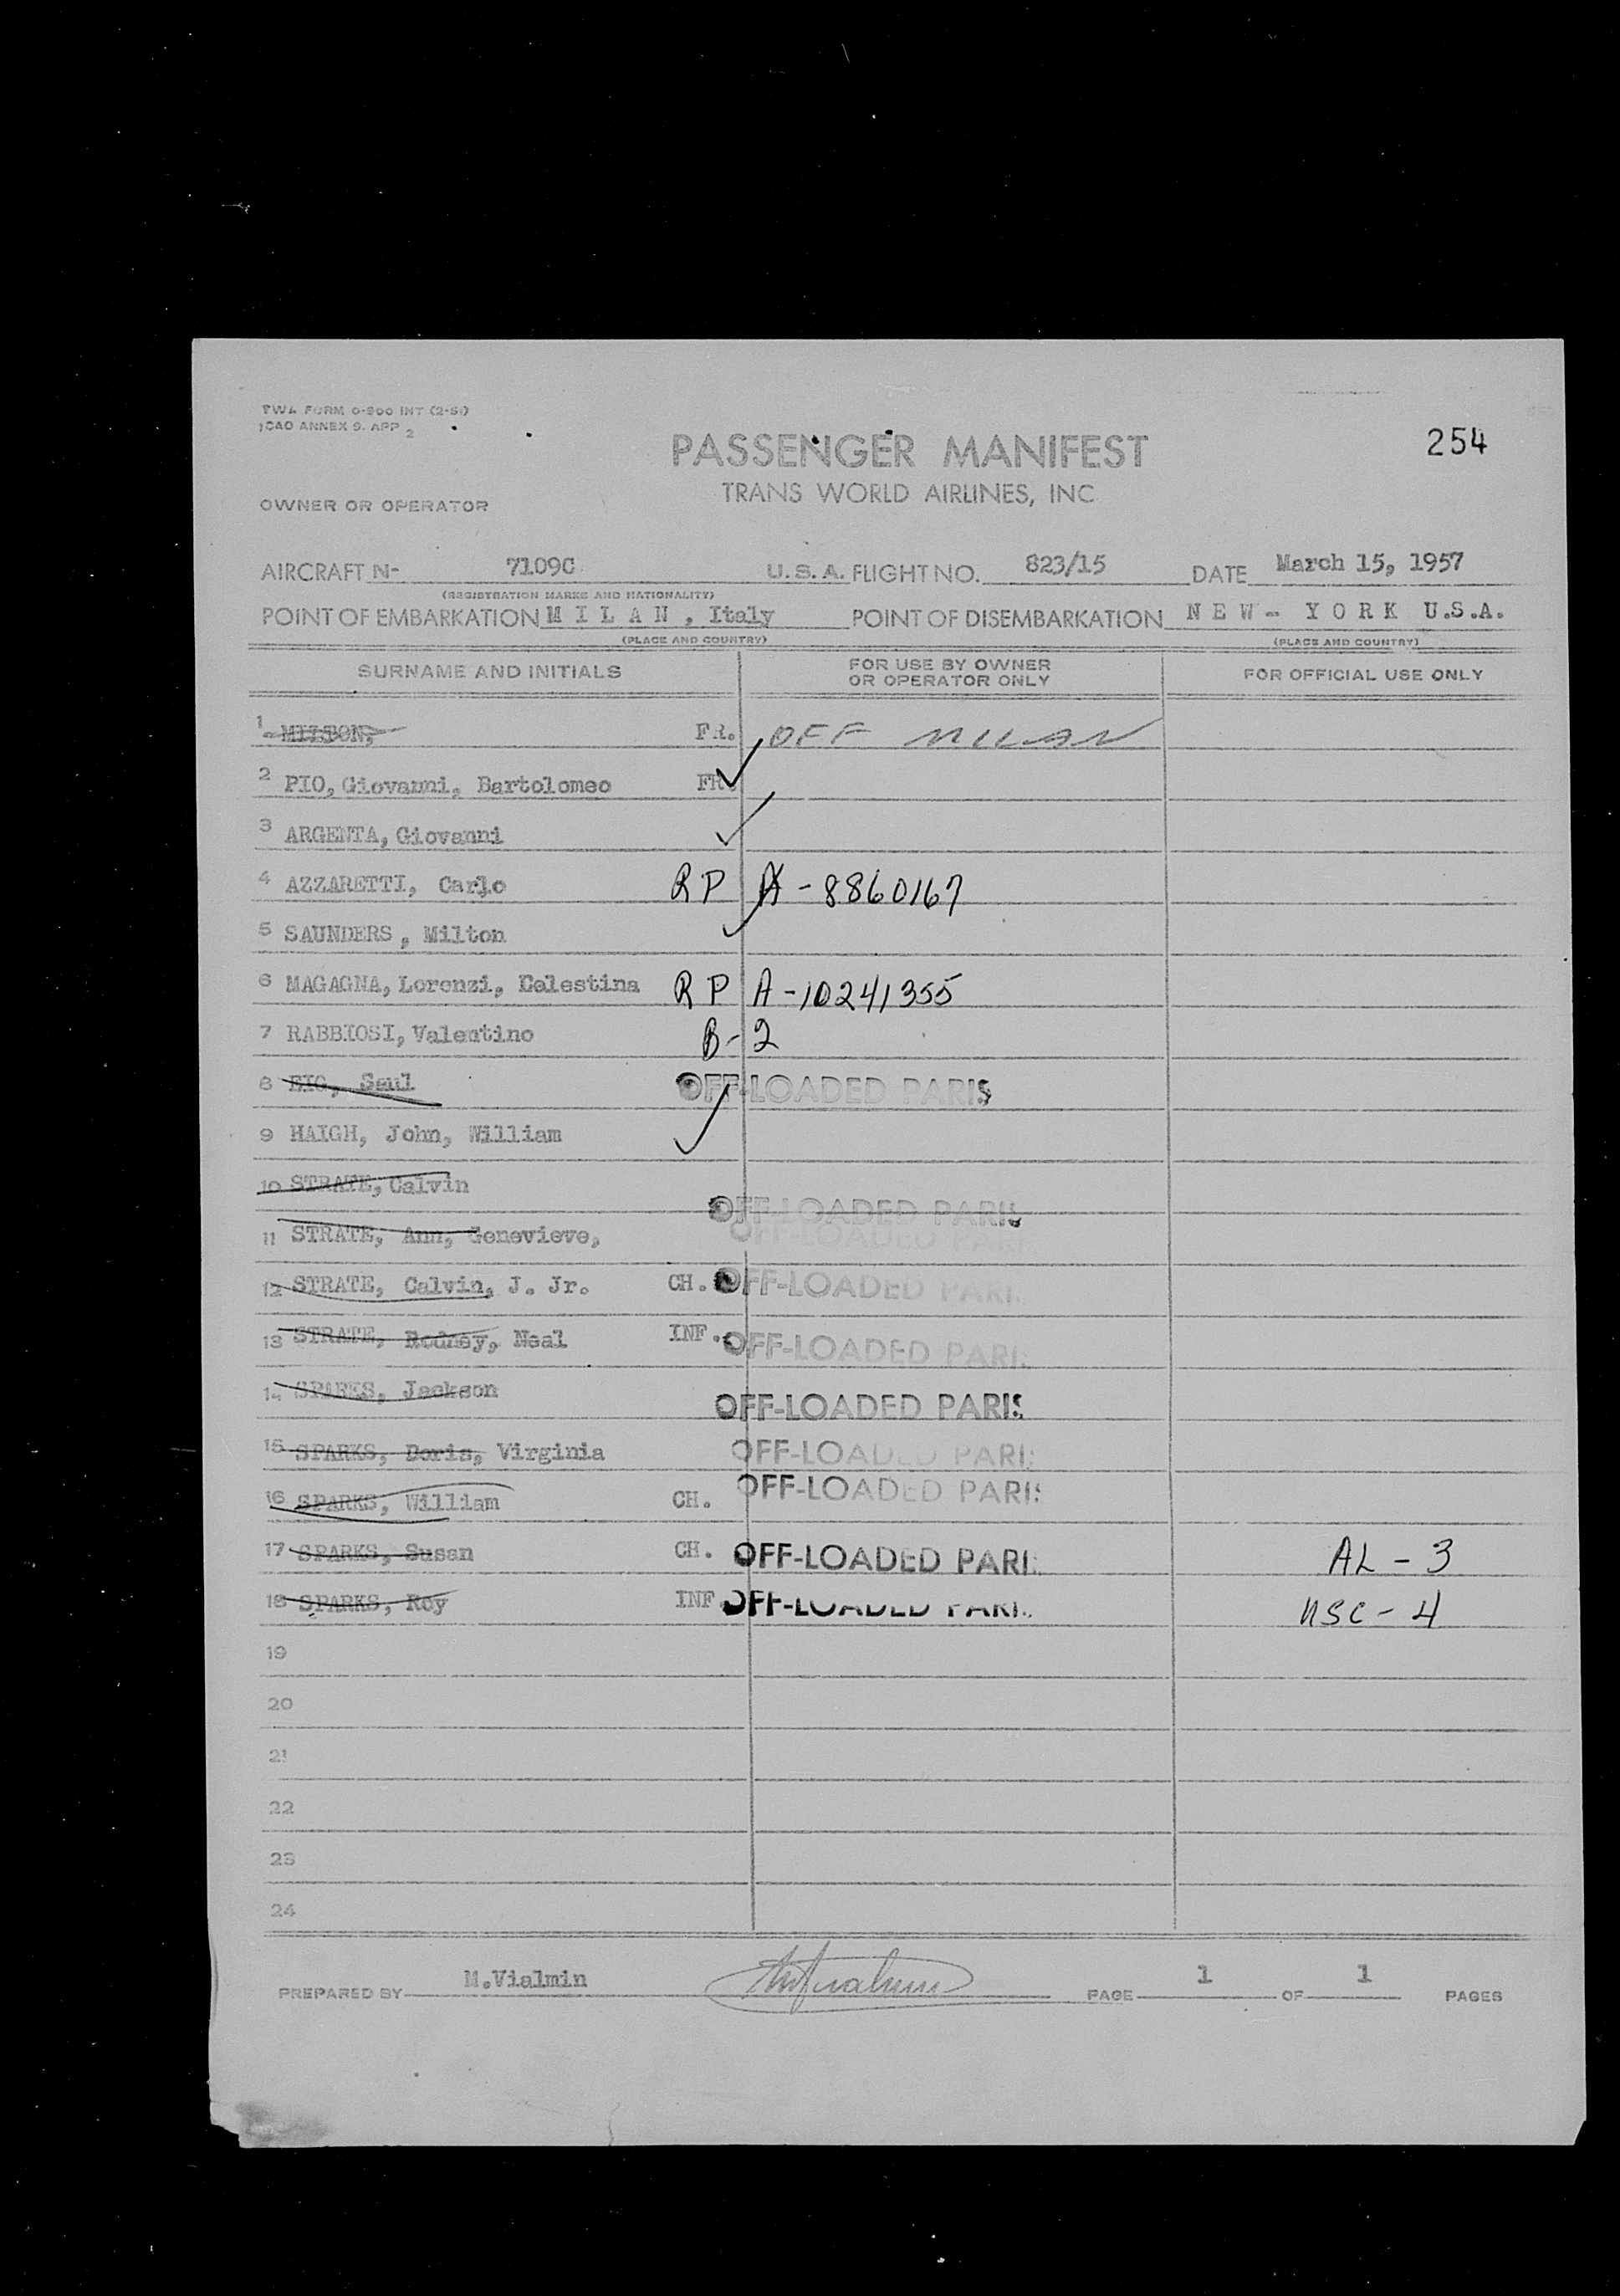 TWA FORM 0-900 INT (2-51)
ICAO ANNEX 9. APP 2
PASSENGER MANIFEST
254
TRANS WORLD AIRLINES, INC
OWNER OR OPERATOR
AIRCRAFT N- 7109C U.S.A. FLIGHT NO. 823/15 DATE March 15, 1957
(REGISTRATION MARKS AND NATIONALITY)
POINT OF EMBARKATION M I L A N , Italy POINT OF DISEMBARKATION N E W - Y O R K U.S.A.
(PLACE AND COUNTRY) (PLACE AND COUNTRY)
SURNAME AND INITIALS FOR USE BY OWNER OR OPERATOR ONLY FOR OFFICIAL USE ONLY
1 MILTON, FR. OFF MILAN
2 PIO, Giovanni, Bartolomeo FR.
3 ARGENTA, Giovanni
4 AZZARETTI, Carlo RP A-8860167
5 SAUNDERS, Milton
6 MAGAGNA, Lorenzi, Celestina RP A-10241355
7 RABBIOSI, Valentino B-2
8 Saul OFF-LOADED PARIS
9 HAIGH, John, William
10 STRATE, Calvin OFF-LOADED PARIS
11 STRATE, Ann, Genevieve, OFF-LOADED PARI
12 STRATE, Calvin, J. Jr. CH. OFF-LOADED PARI
13 STRATE, Rodney, Neal INF. OFF-LOADED PARI
14 SPARKS, Jackson OFF-LOADED PARIS
15 SPARKS, Doris, Virginia OFF-LOADED PARI
16 SPARKS, William CH. OFF-LOADED PARI
17 SPARKS, Susan CH. OFF-LOADED PARI AL - 3
18 SPARKS, Roy INF. OFF-LOADED PARI USC - 4
19
20
21
22
23
24
PREPARED BY M.Vialmin PAGE 1 OF 1 PAGES